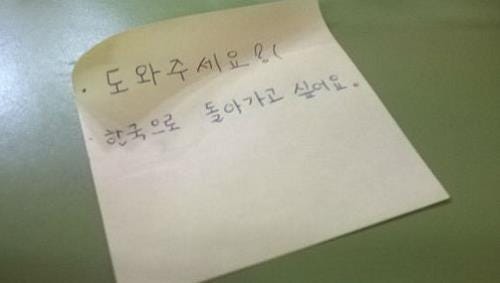 · 도와주세요!!
· 한국으로 돌아가고 싶어요.